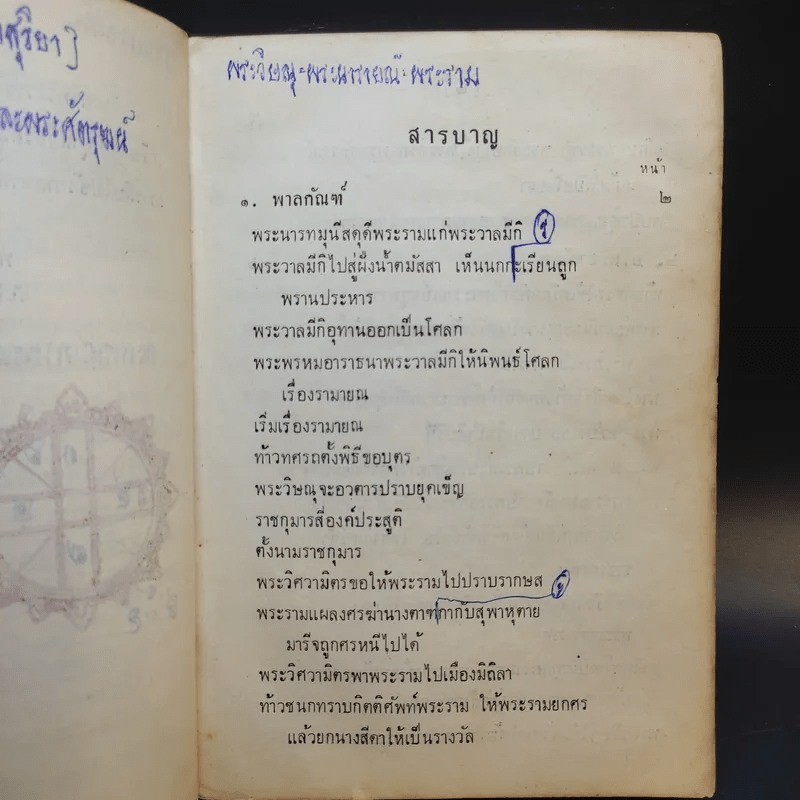 ศุริยา]
ละพระศัตรุฆน์
พระวิษณุ=พระนารายณ์=พระราม
สารบาญ
หน้า
๑. พาลกัณฑ์ ๒
พระนารทมุนีสดุดีพระรามแก่พระวาลมีกิ
พระวาลมีกิไปสู่ฝั่งน้ำตมัสสา เห็นนกกะเรียนถูก
พรานประหาร
พระวาลมีกิอุทานออกเป็นโศลก
พระพรหมอาราธนาพระวาลมีกิให้นิพนธ์โศลก
เรื่องรามายณ
เริ่มเรื่องรามายณ
ท้าวทศรถตั้งพิธีขอบุตร
พระวิษณุจะอวตารปราบยุคเข็ญ
ราชกุมารสี่องค์ประสูติ
ตั้งนามราชกุมาร
พระวิศวามิตรขอให้พระรามไปปราบรากษส
พระรามแผลงศรฆ่านางตาฑกากับสุพาหุตาย
มารีจถูกศรหนีไปได้
พระวิศวามิตรพาพระรามไปเมืองมิถิลา
ท้าวชนกทราบกิตติศัพท์พระราม ให้พระรามยกศร
แล้วยกนางสีดาให้เป็นรางวัล